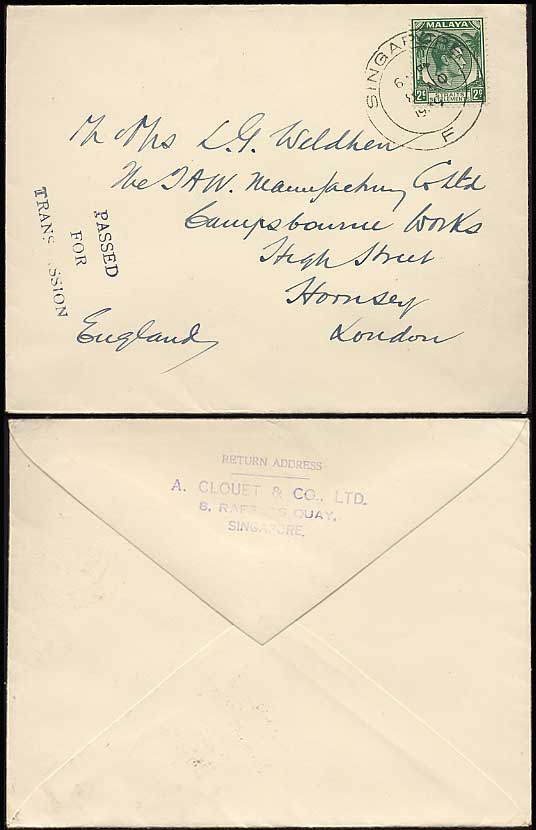 MALAYA
STRAITS
SETTLEMENTS
2c 2c
SINGAPORE
F
Mr & Mrs L. G. Weldhen
The JAW. Manufacturing Co Ltd
Campsbourne Works
High Street
Hornsey
England London
PASSED
FOR
TRANS SSION
RETURN ADDRESS
A. CLOUET & CO., LTD.
8, RAFFLES QUAY,
SINGAPORE.